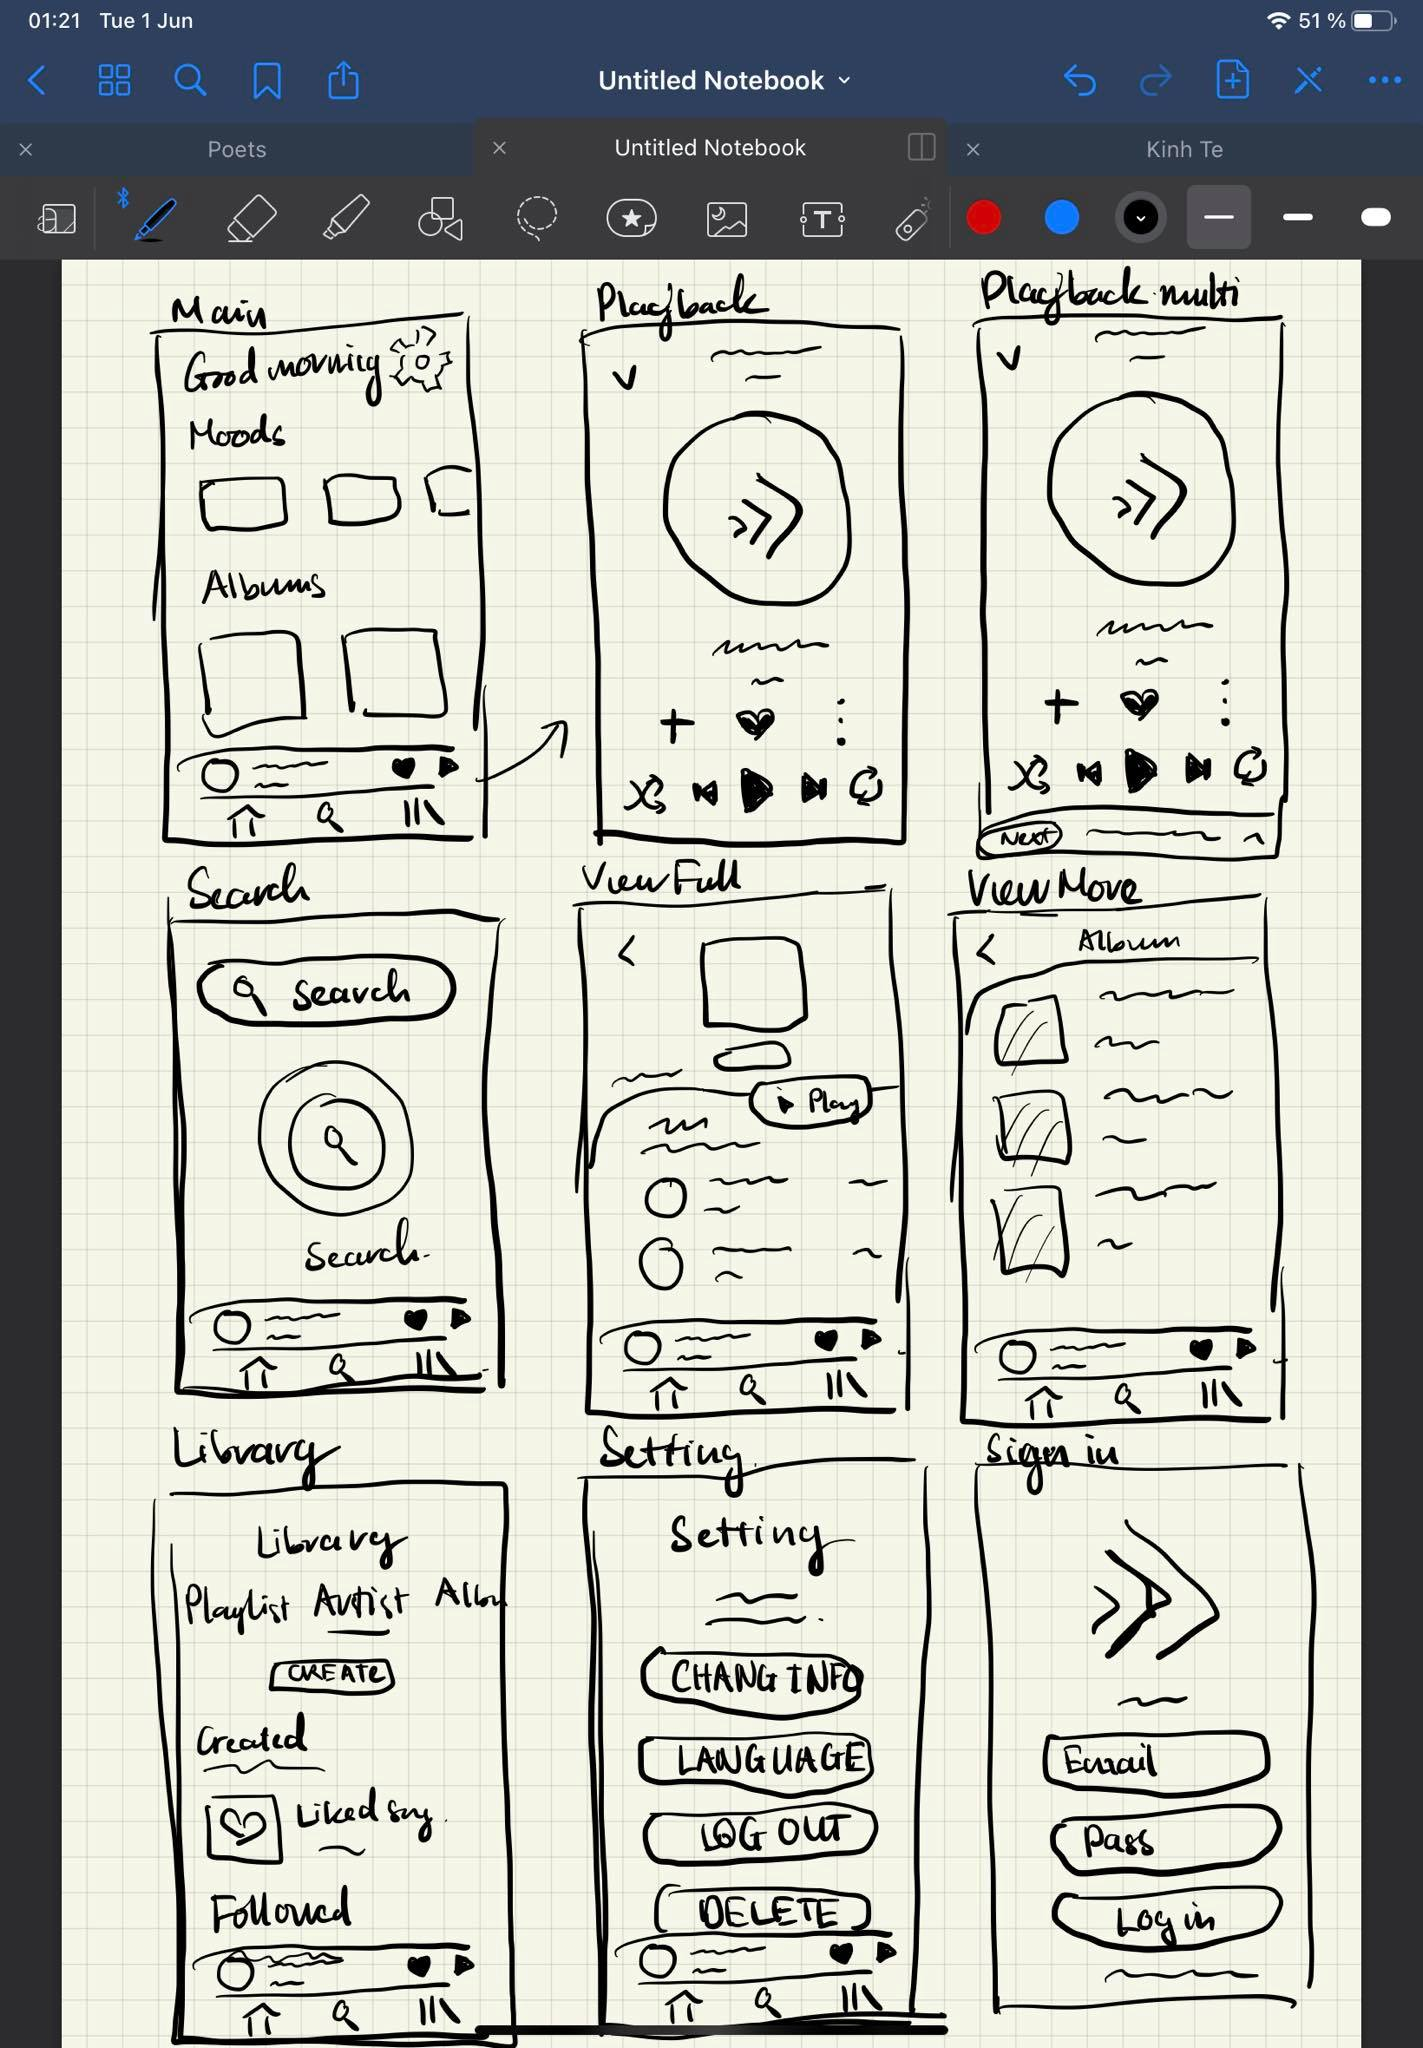 01:21 Tue 1 Jun
51 %
Untitled Notebook
Poets
Untitled Notebook
Kinh Te
T
Main
Good morning
Moods
Albums
Playback
Playback multi
Next
Search
Search
Search.
View Full
Play
View More
Album
Library
Library
Playlist Artist Albu
CREATE
Created
Liked song.
Followed
Setting
Setting
CHANG INFO
LANGUAGE
LOG OUT
DELETE
Sign in
Email
Pass
Log in